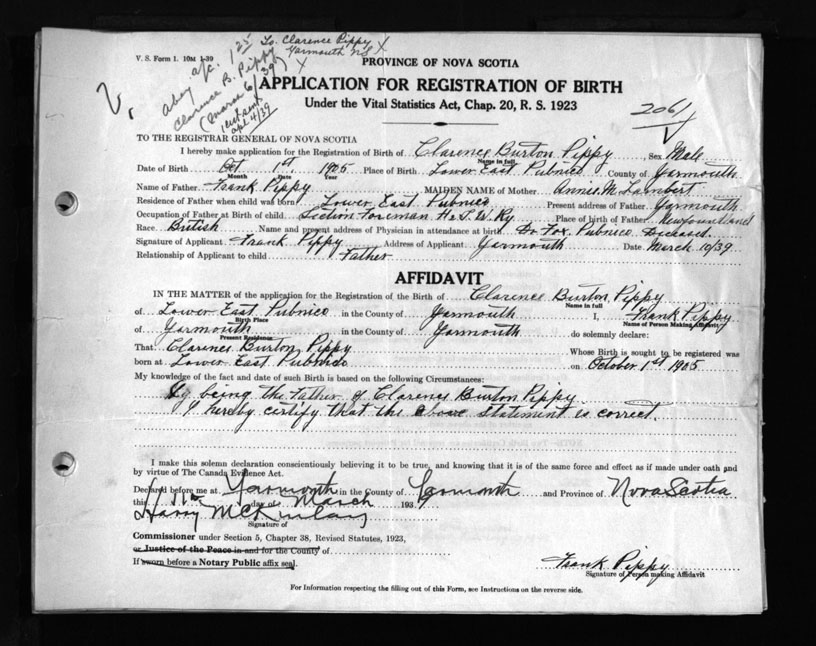 V. S. Form 1. 10M 1-39
To. Clarence Pippy X
Yarmouth N.S X
a/c. 1 25
Clarence B. Pippy
(March 6/39)
apl 4/39
V.
PROVINCE OF NOVA SCOTIA
APPLICATION FOR REGISTRATION OF BIRTH
Under the Vital Statistics Act, Chap. 20, R. S. 1923
2061
TO THE REGISTRAR GENERAL OF NOVA SCOTIA
I hereby make application for the Registration of Birth of Clarence Burton Pippy, Sex Male
Name in full
Date of Birth Oct 1st 1905 Place of Birth Lower East Pubnico County of Yarmouth
Month Date Year
Name of Father Frank Pippy MAIDEN NAME of Mother Annie M. Lambert
Residence of Father when child was born Lower East Pubnico Present address of Father Yarmouth
Occupation of Father at Birth of child Section Foreman H & S. W. Ry Place of birth of Father Newfoundland
Race British Name and present address of Physician in attendance at birth Dr Fox, Pubnico, Deceased.
Signature of Applicant Frank Pippy Address of Applicant Yarmouth Date March 10/39
Relationship of Applicant to child Father
AFFIDAVIT
IN THE MATTER of the application for the Registration of the Birth of Clarence Burton Pippy
Name in full
of Lower East Pubnico in the County of Yarmouth I, Frank Pippy
Birth Place Name of Person Making Affidavit
of Yarmouth in the County of Yarmouth do solemnly declare:
Present Residence
That Clarence Burton Pippy Whose Birth is sought to be registered was
born at Lower East Pubnico on October 1st 1905
My knowledge of the fact and date of such Birth is based on the following Circumstances:
By being the Father of Clarence Burton Pippy.
I hereby certify that the above statement is correct.
I make this solemn declaration conscientiously believing it to be true, and knowing that it is of the same force and effect as if made under oath and
by virtue of The Canada Evidence Act.
Declared before me at Yarmouth in the County of Yarmouth and Province of Nova Scotia
this day of March 193
Harry
Signature of
Commissioner under Section 5, Chapter 38, Revised Statutes, 1923,
or Justice of the Peace in and for the County of
If sworn before a Notary Public affix seal.
Frank Pippy
Signature of Person making Affidavit
For Information respecting the filling out of this Form, see Instructions on the reverse side.